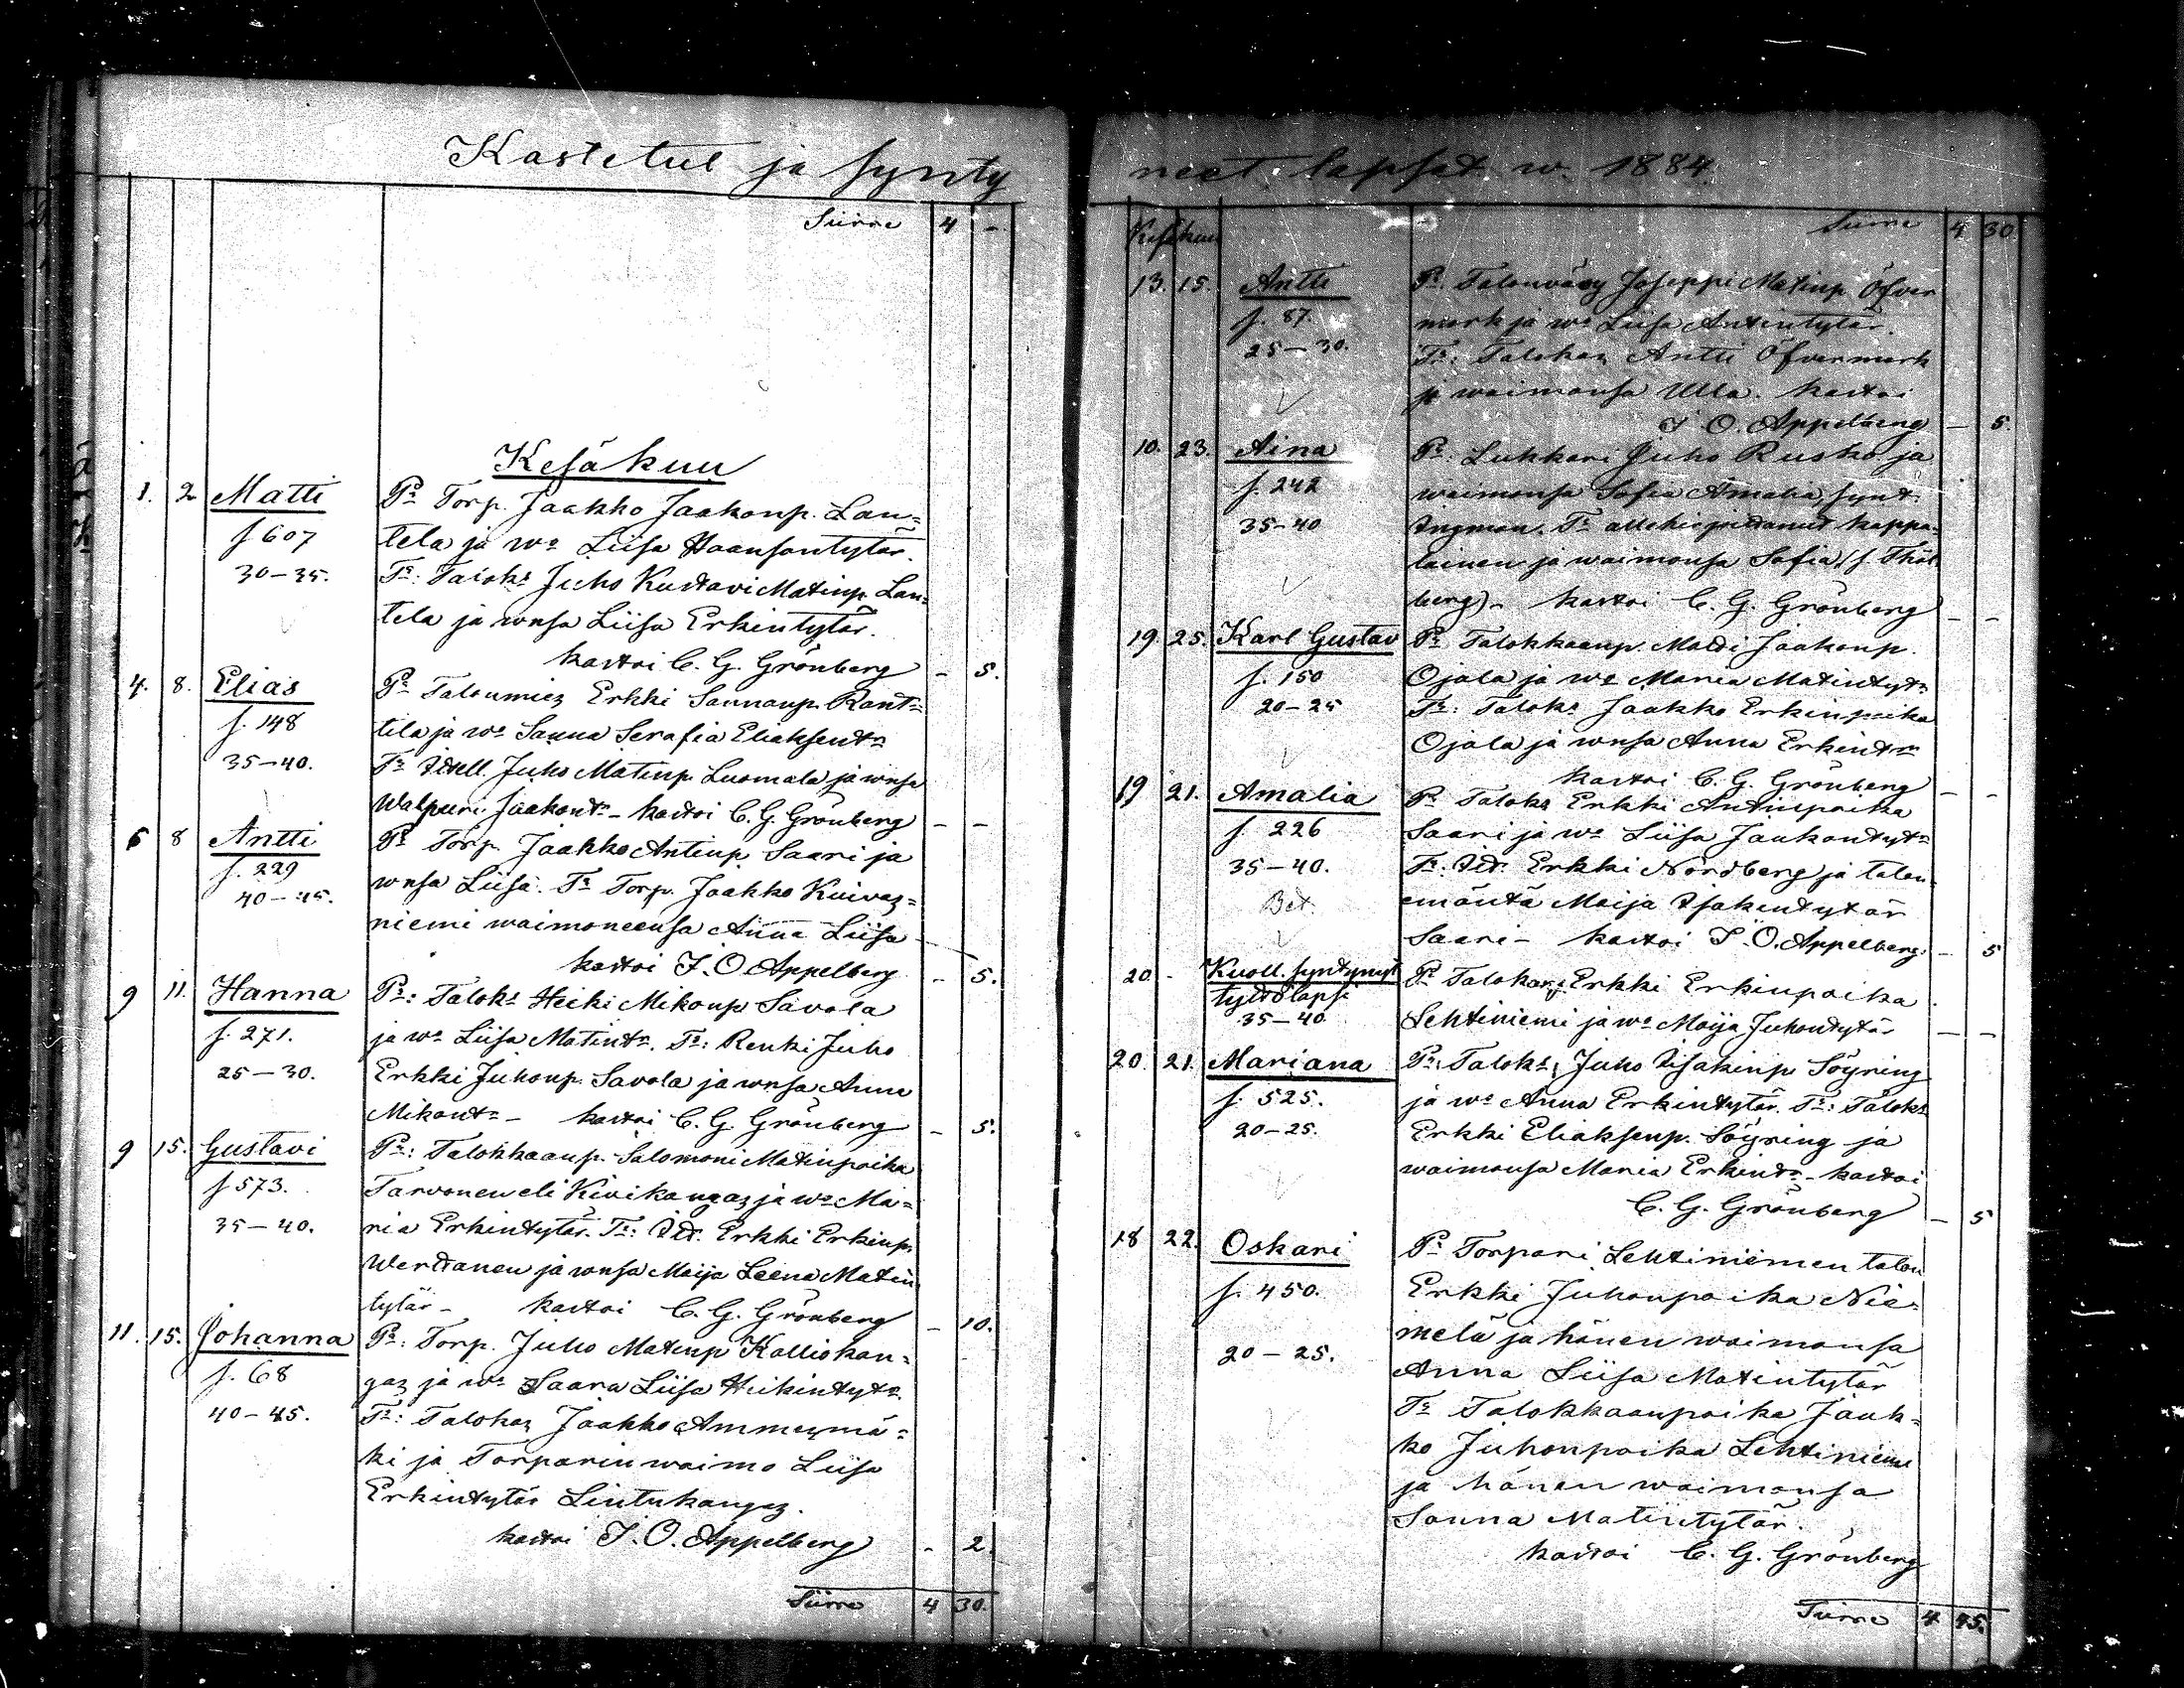 Kastetut ja synty
Siirre 4 -
Kesäkuu
1. 2 Matti Pr Torp. Jaakko Jaakonp. Lan=
f 607 tela ja wo Liisa Haansontytär.
30-35. Tr: Taloks Juho Kustavi Matinp. Lan=
tela ja wnsa Liisa Erkintytär.
kastoi C. G. Grönberg - 5.
4. 8. Elias Pr Taloumiez Erkki Sannanp. Rant=
f. 148 tila ja wo Sanna Serafia Eliaksentr
35-40. Tr Itsell. Juho Matinp. Luomala ja wnsa
Walpuri Jaakontr - kastoi C. G. Grönberg - -
6 8 Antti Pr Torp. Jaakko Antinp. Saari ja
f. 229 wnsa Liisa. Tr Torp. Jaakko Kuivaz=
40-45. niemi waimoneensa Anna Liisa
kastoi J. O. Appelberg - 5.
9 11. Hanna Pr: Taloks Heiki Mikonp Savola
f. 271. ja wo Liisa Matintr. Tr: Renki Juho
25-30. Erkki Juhonp. Savola ja wnsa Anna
Mikontr - kastoi C. G. Grönberg - 5.
9 15. Gustavi Pr: Talokkaanp. Salomoni Matinpoika
f 573. Tarvonen eli Kivikangaz ja wo Ma=
35-40. ria Erkintytär. Tr: Itr. Erkki Erkinp.
Wertanen ja wnsa Maija Leena Matin
tytär - kastoi C. G. Grönberg - 10.
11. 15. Johanna Pr: Torp. Juho Matinp Kalliokan=
f. 68 gaz ja wo Saara Liisa Heikintytr.
40-45. Tr: Talokaz Jaakko Ammezmä=
ki ja Torparin waimo Liisa
Erkintytär Lintukangaz.
kastoi J. O. Appelberg - 2.
Siirre 4 30.
neet lapset w. 1884
Kesäkuu Siirre 4 30
13. 15. Antti Pr. Talonväzy Joseppi Matinp Öfver
f. 87. mark ja wo Liisa Antintytär.
25-30. Tr: Talokaz Antti Öfvermark
ja waimonsa Ulla. kastoi
J. O. Appelberg - 5.
10. 23. Aina Pr. Lukkari Juho Rusko ja
f. 242 waimonsa Sofia Amalia synt.
35-40 Ingman. Tr allekirjoittanut kappa=
lainen ja waimonsa Sofia (s. Thöl
berg) - kastoi C. G. Grönberg - -
19. 25. Karl Gustav Pr Talokkaanp. Matti Jaakonp.
f. 150 Ojala ja wo Maria Matintytr
20-25 Tr: Taloks Jaakko Erkinpoika
Ojala ja wnsa Anna Erkintr
kastoi C. G. Grönberg - -
19 21. Amalia Pr Talokz Erkki Antinpoika
f. 226 Saari ja wo Liisa Jaakontytr
35-40. Tr. Itr. Erkki Nordberg ja talon
Bet. emäntä Maija Isakintytär
Saari - kastoi J. O. Appelberg. - 5
20 - Kuoll. syntynyt Pr Talokaz Erkki Erkinpoika
tyttölapsi
35-40 Lehtiniemi ja wo Maija Juhontytär - -
20. 21. Mariana Pr: Taloks, Juho Isakinp Söyring
f. 525. ja wo Anna Erkintytär. Tr: Taloks
20-25. Erkki Eliaksenp. Söyring ja
waimonsa Maria Erkintr - kastoi
C. G. Grönberg - 5
18 22. Oskari Pr Torpari Lehtiniemen talon
f. 450. Erkki Juhonpoika Nie=
20-25. melä ja hänen waimonsa
Anna Liisa Matintytär
Tr Talokkaanpoika Jaak=
ko Juhonpoika Lehtiniemi
ja hänen waimonsa
Sanna Matintytär.
kastoi C. G. Grönberg
Siirre 4 45.